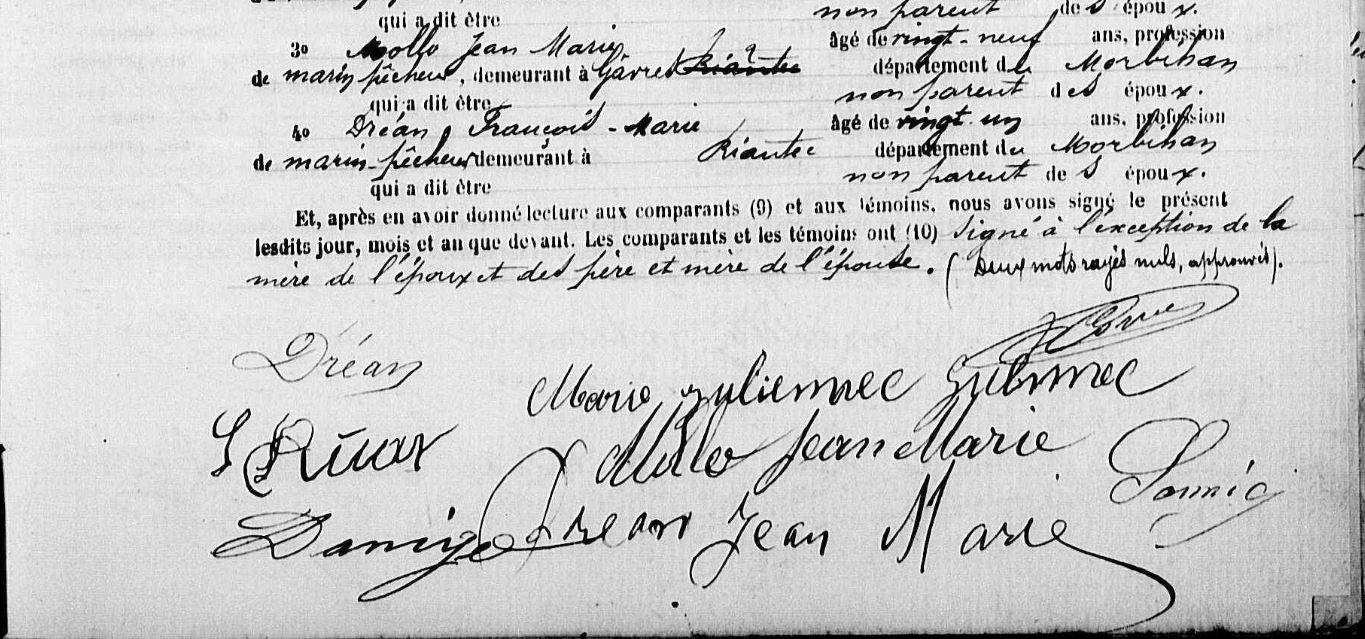 non parent des époux.
qui a dit être
3º Mollo Jean Marie âgé de vingt-neuf ans, profession
de marin pêcheur, demeurant à Gâvres Riantec département du Morbihan
qui a dit être non parent des époux.
4º Dréan, François-Marie âgé de vingt un ans, profession
de marin-pêcheur demeurant à Riantec département du Morbihan
qui a dit être non parent des époux.
Et, après en avoir donné lecture aux comparants (9) et aux témoins, nous avons signé le présent
lesdits jour, mois et an que devant. Les comparants et les témoins ont (10) signé à l'exception de la
mère de l'époux et des père et mère de l'épouse. (Deux mots rayés nuls, approuvés).
Dréan
Marie Juliennec
Mollo Jean Marie
Dréan Jean Marie